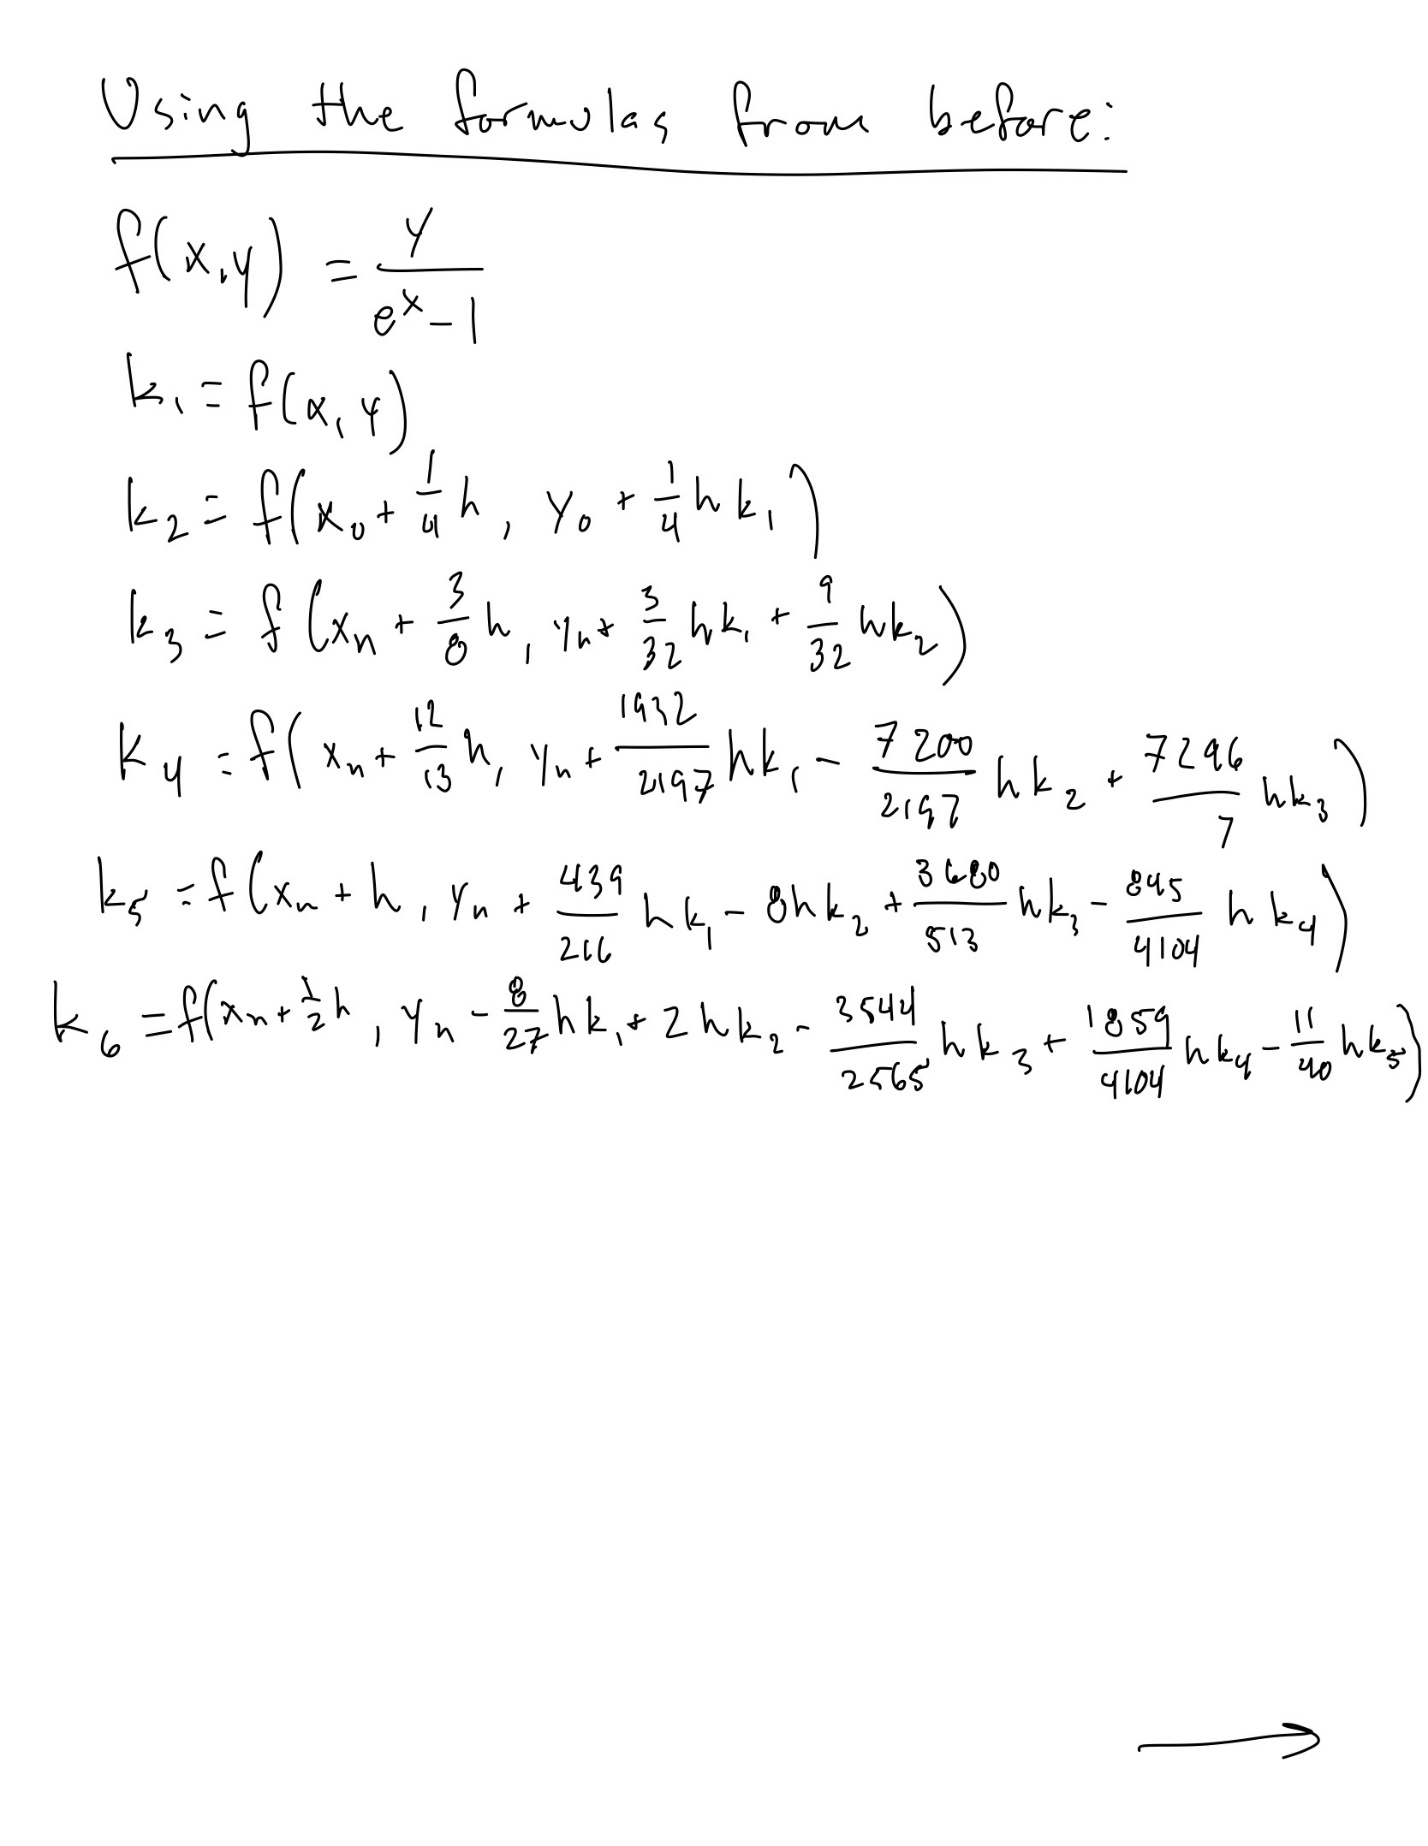 Using the formulas from before:
f(x,y) = y/(e^x - 1)
k₁ = f(x, y)
k₂ = f(x₀ + 1/4 h, y₀ + 1/4 h k₁)
k₃ = f(xₙ + 3/8 h, yₙ + 3/32 hk₁ + 9/32 hk₂)
k₄ = f(xₙ + 12/13 h, yₙ + 1932/2197 hk₁ - 7200/2197 hk₂ + 7296/7 hk₃)
k₅ = f(xₙ + h, yₙ + 439/216 hk₁ - 8hk₂ + 3680/513 hk₃ - 845/4104 hk₄)
k₆ = f(xₙ + 1/2 h, yₙ - 8/27 hk₁ + 2hk₂ - 3544/2565 hk₃ + 1859/4104 hk₄ - 11/40 hk₅)